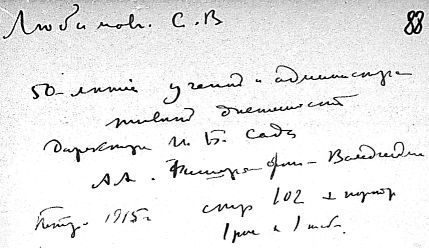 Любимов. С.В 88
50-летие ученой и администра
тивной деятельност
Директора И. Б. Сада
А.А. Фишера фон-Вальдгейм
Петр. 1915г. стр 102 + портр
1 рис и 1 табл.